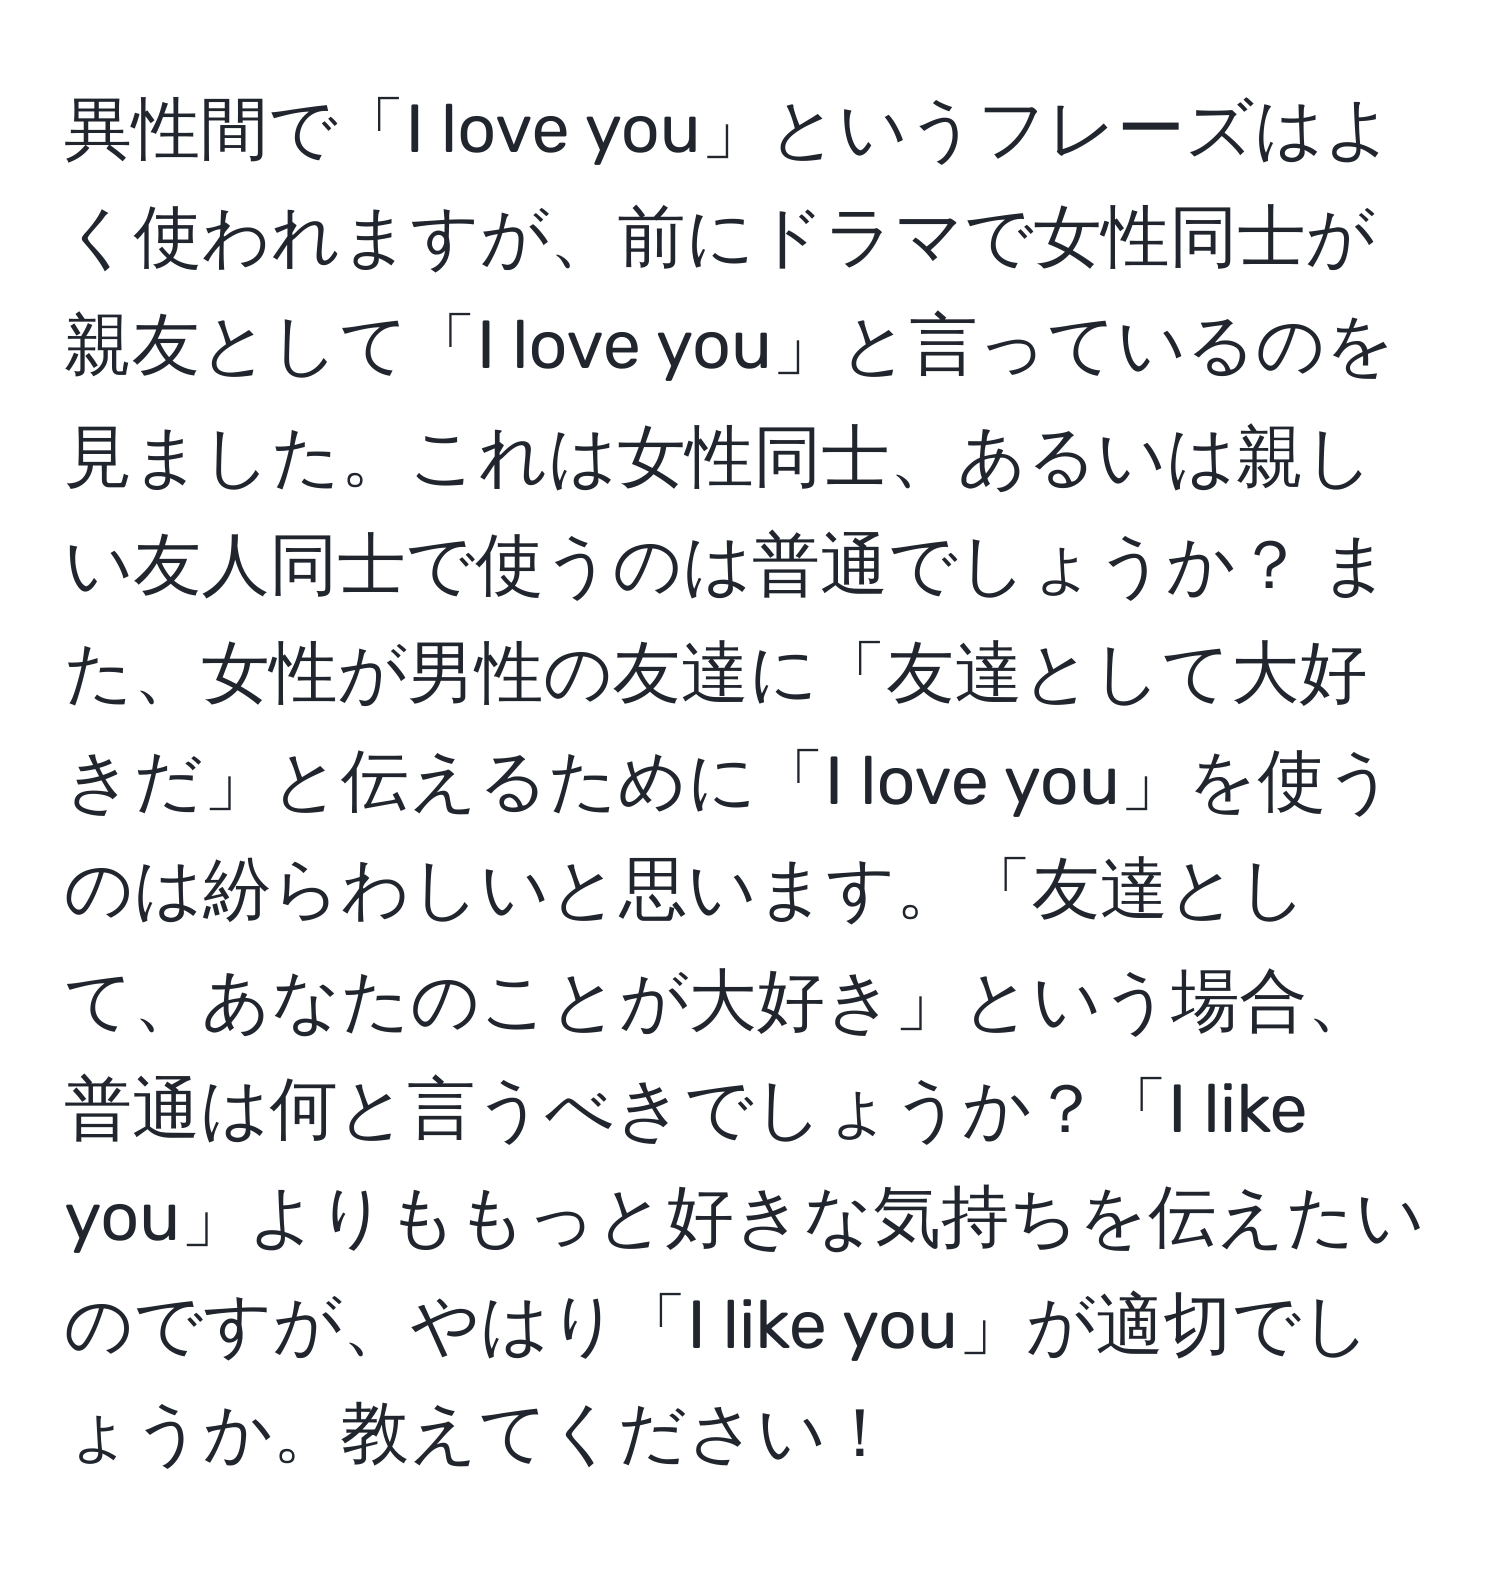 異性間で「I love you」というフレーズはよ
く使われますが、前にドラマで女性同士が
親友として「I love you」と言っているのを
見ました。これは女性同士、あるいは親し
い友人同士で使うのは普通でしょうか？ ま
た、女性が男性の友達に「友達として大好
きだ」と伝えるために「I love you」を使う
のは紛らわしいと思います。「友達とし
て、あなたのことが大好き」という場合、
普通は何と言うべきでしょうか？「I like
you」よりももっと好きな気持ちを伝えたい
のですが、やはり「I like you」が適切でし
ょうか。教えてください！